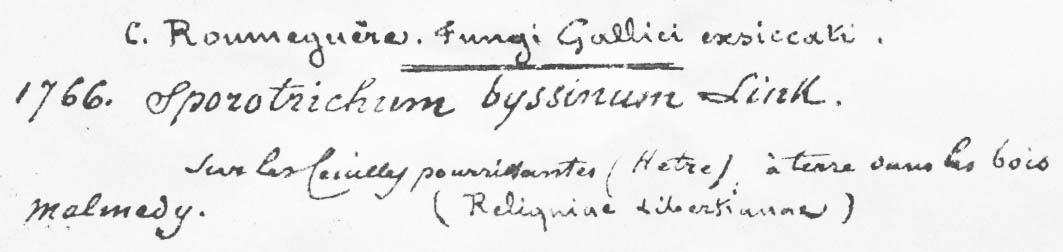 C. Roumeguère. Fungi Gallici exsiccati.
1766. Sporotrichum byssinum Link.
Sur les feuilles pourrissantes (Hetre), à terre dans les bois
Malmedy. (Reliquiae Libertianae)